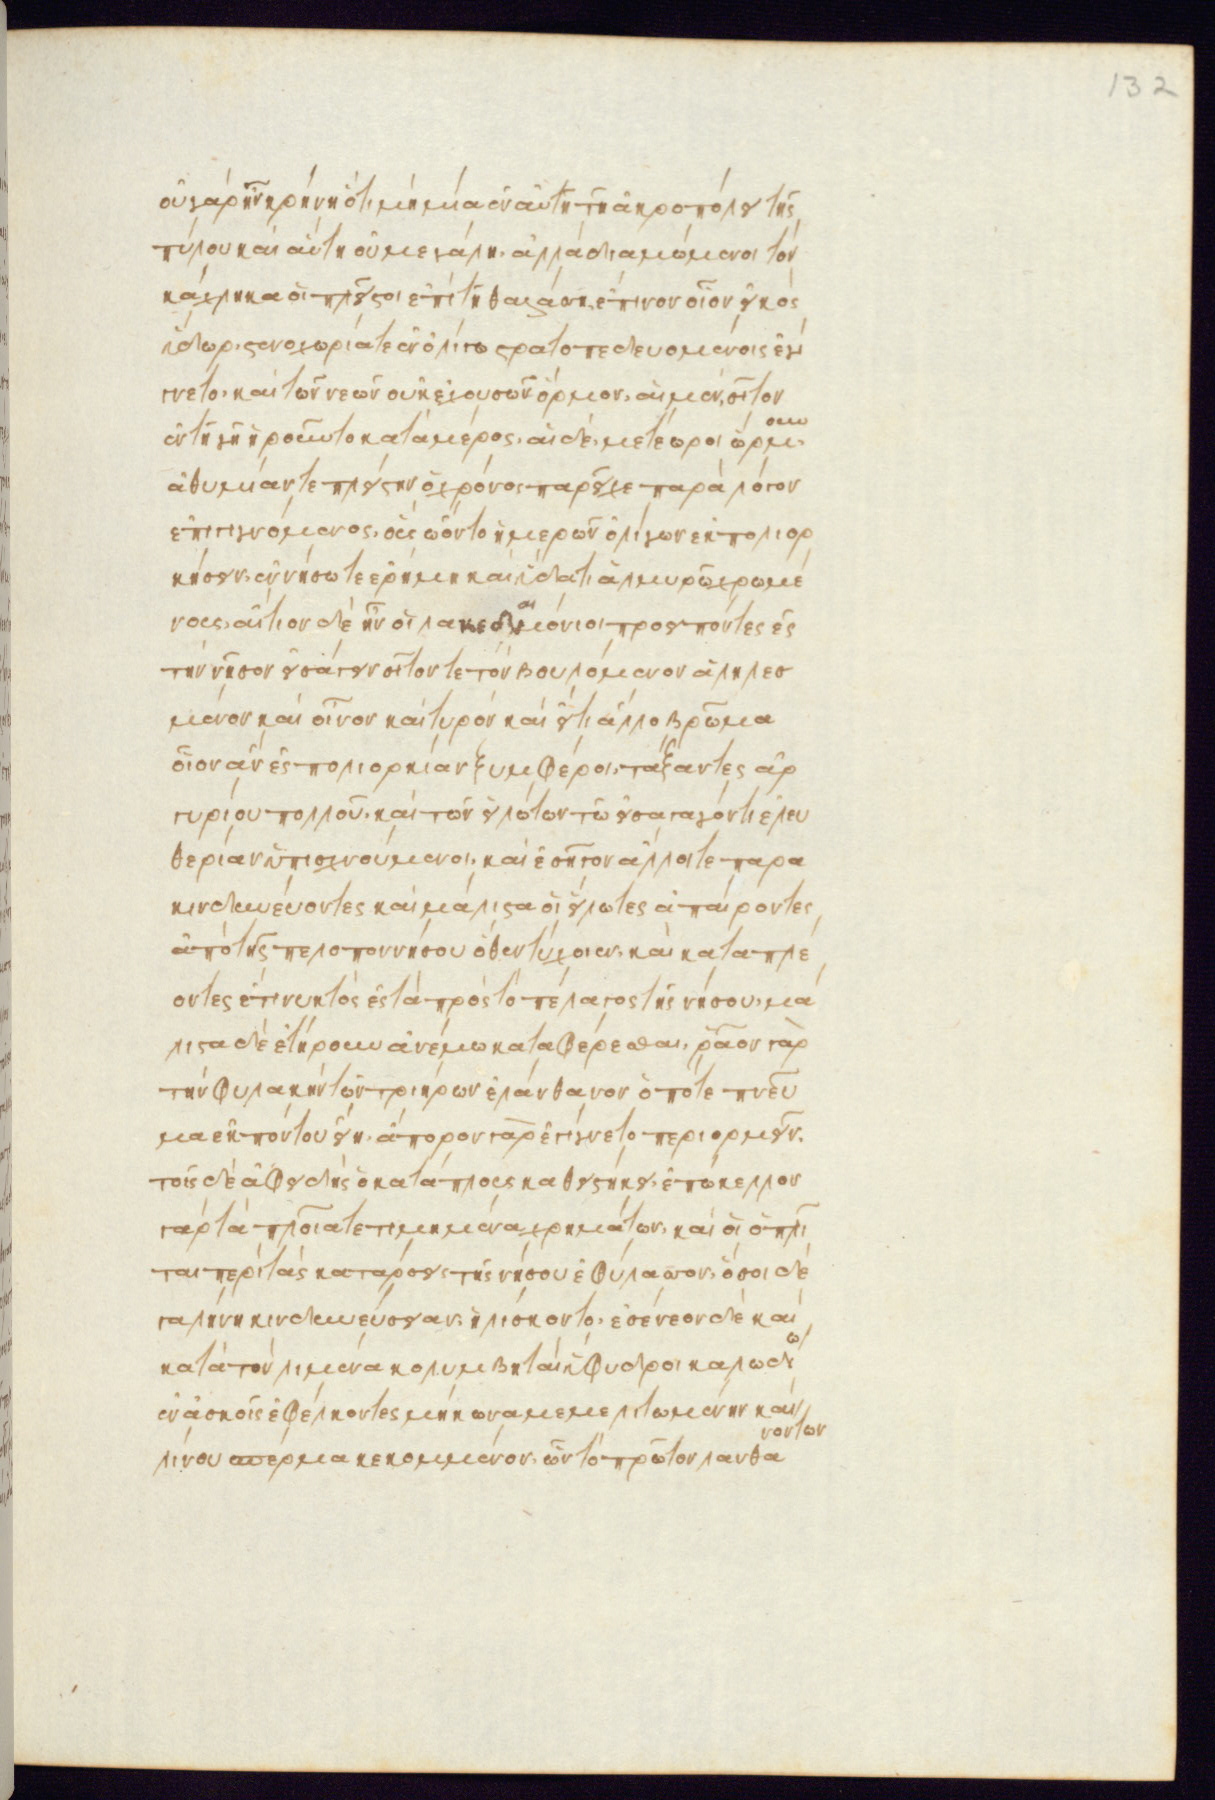 132
οὐ γὰρ ἦν κρήνη ὅτι μὴ μία ἐν αὐτῆ τῆ ἀκροπόλει τῆς
πύλου καὶ αὕτη οὐ μεγάλη· ἀλλὰ διαμώμενοι τὸν
κάχληκα οἱ πλεῖστοι ἐπὶ τῆ θαλάσση, ἔπινον οἷον εἰκὸς
ὕδωρ· στενοχωρία τε ἐν ὀλίγω στρατοπεδευομένοις ἐγί
γνετο· καὶ τῶν νεῶν οὐκ ἐχουσῶν ὅρμον· αἱ μὲν, σῖτον
ἐν τῆ γῆ ἡροῦντο κατὰ μέρος· αἱ δὲ, μετέωροι ὥρμουν·
ἀθυμίαν τε πλείστην ὁ χρόνος παρεῖχε παρὰ λόγον
ἐπιγιγνόμενος· οὓς ὤοντο ἡμερῶν ὀλίγων ἐκπολιορ
κήσειν· ἐν νήσω τε ἐρήμη καὶ ὕδατι ἁλμυρῶ χρωμέ
νους· αἴτιον δὲ ἦν οἱ λακεδαιμόνιοι προειπόντες ἐς
τὴν νῆσον εἰσάγειν σῖτον τε τὸν βουλόμενον ἀληλεσ
μένον καὶ οἶνον καὶ τυρὸν καὶ εἴ τι ἄλλο βρῶμα
οἷον ἂν ἐς πολιορκίαν ξυμφέροι· τάξαντες ἀρ
γυρίου πολλοῦ· καὶ τῶν εἱλώτων τῶ εἰσαγαγόντι ἐλευ
θερίαν ὑπισχνούμενοι· καὶ ἐσῆγον ἄλλοι τε παρα
κινδυνεύοντες καὶ μάλιστα οἱ εἵλωτες ἀπαίροντες
ἀπὸ τῆς πελοποννήσου ὅθεν τύχοιεν· καὶ καταπλέ
οντες ἔτι νυκτὸς ἐς τὰ πρὸς τὸ πέλαγος τῆς νήσου· μά
λιστα δὲ ἐτήρουν ἀνέμω καταφέρεσθαι· ῥᾶον γὰρ
τὴν φυλακὴν τῶν τριήρων ἐλάνθανον ὁπότε πνεῦ
μα ἐκ πόντου εἴη· ἄπορον γὰρ ἐγίγνετο περιορμεῖν·
τοῖς δὲ ἀφειδὴς ὁ κατάπλους καθειστήκει· ἐπώκελλον
γὰρ τὰ πλοῖα τετιμημένα χρημάτων· καὶ οἱ ὁπλῖ
ται περὶ τὰς κατάρσεις τῆς νήσου ἐφύλασσον· ὅσοι δὲ
γαλήνη κινδυνεύσειαν· ἡλίσκοντο· ἐσένεον δὲ καὶ
κατὰ τὸν λιμένα κολυμβηταὶ ὕφυδροι καλωδίω
ἐν ἀσκοῖς ἐφέλκοντες μήκωνα μεμελιτωμένην καὶ
λίνου σπέρμα κεκομμένον· ὧν τὸ πρῶτον λανθανόντων